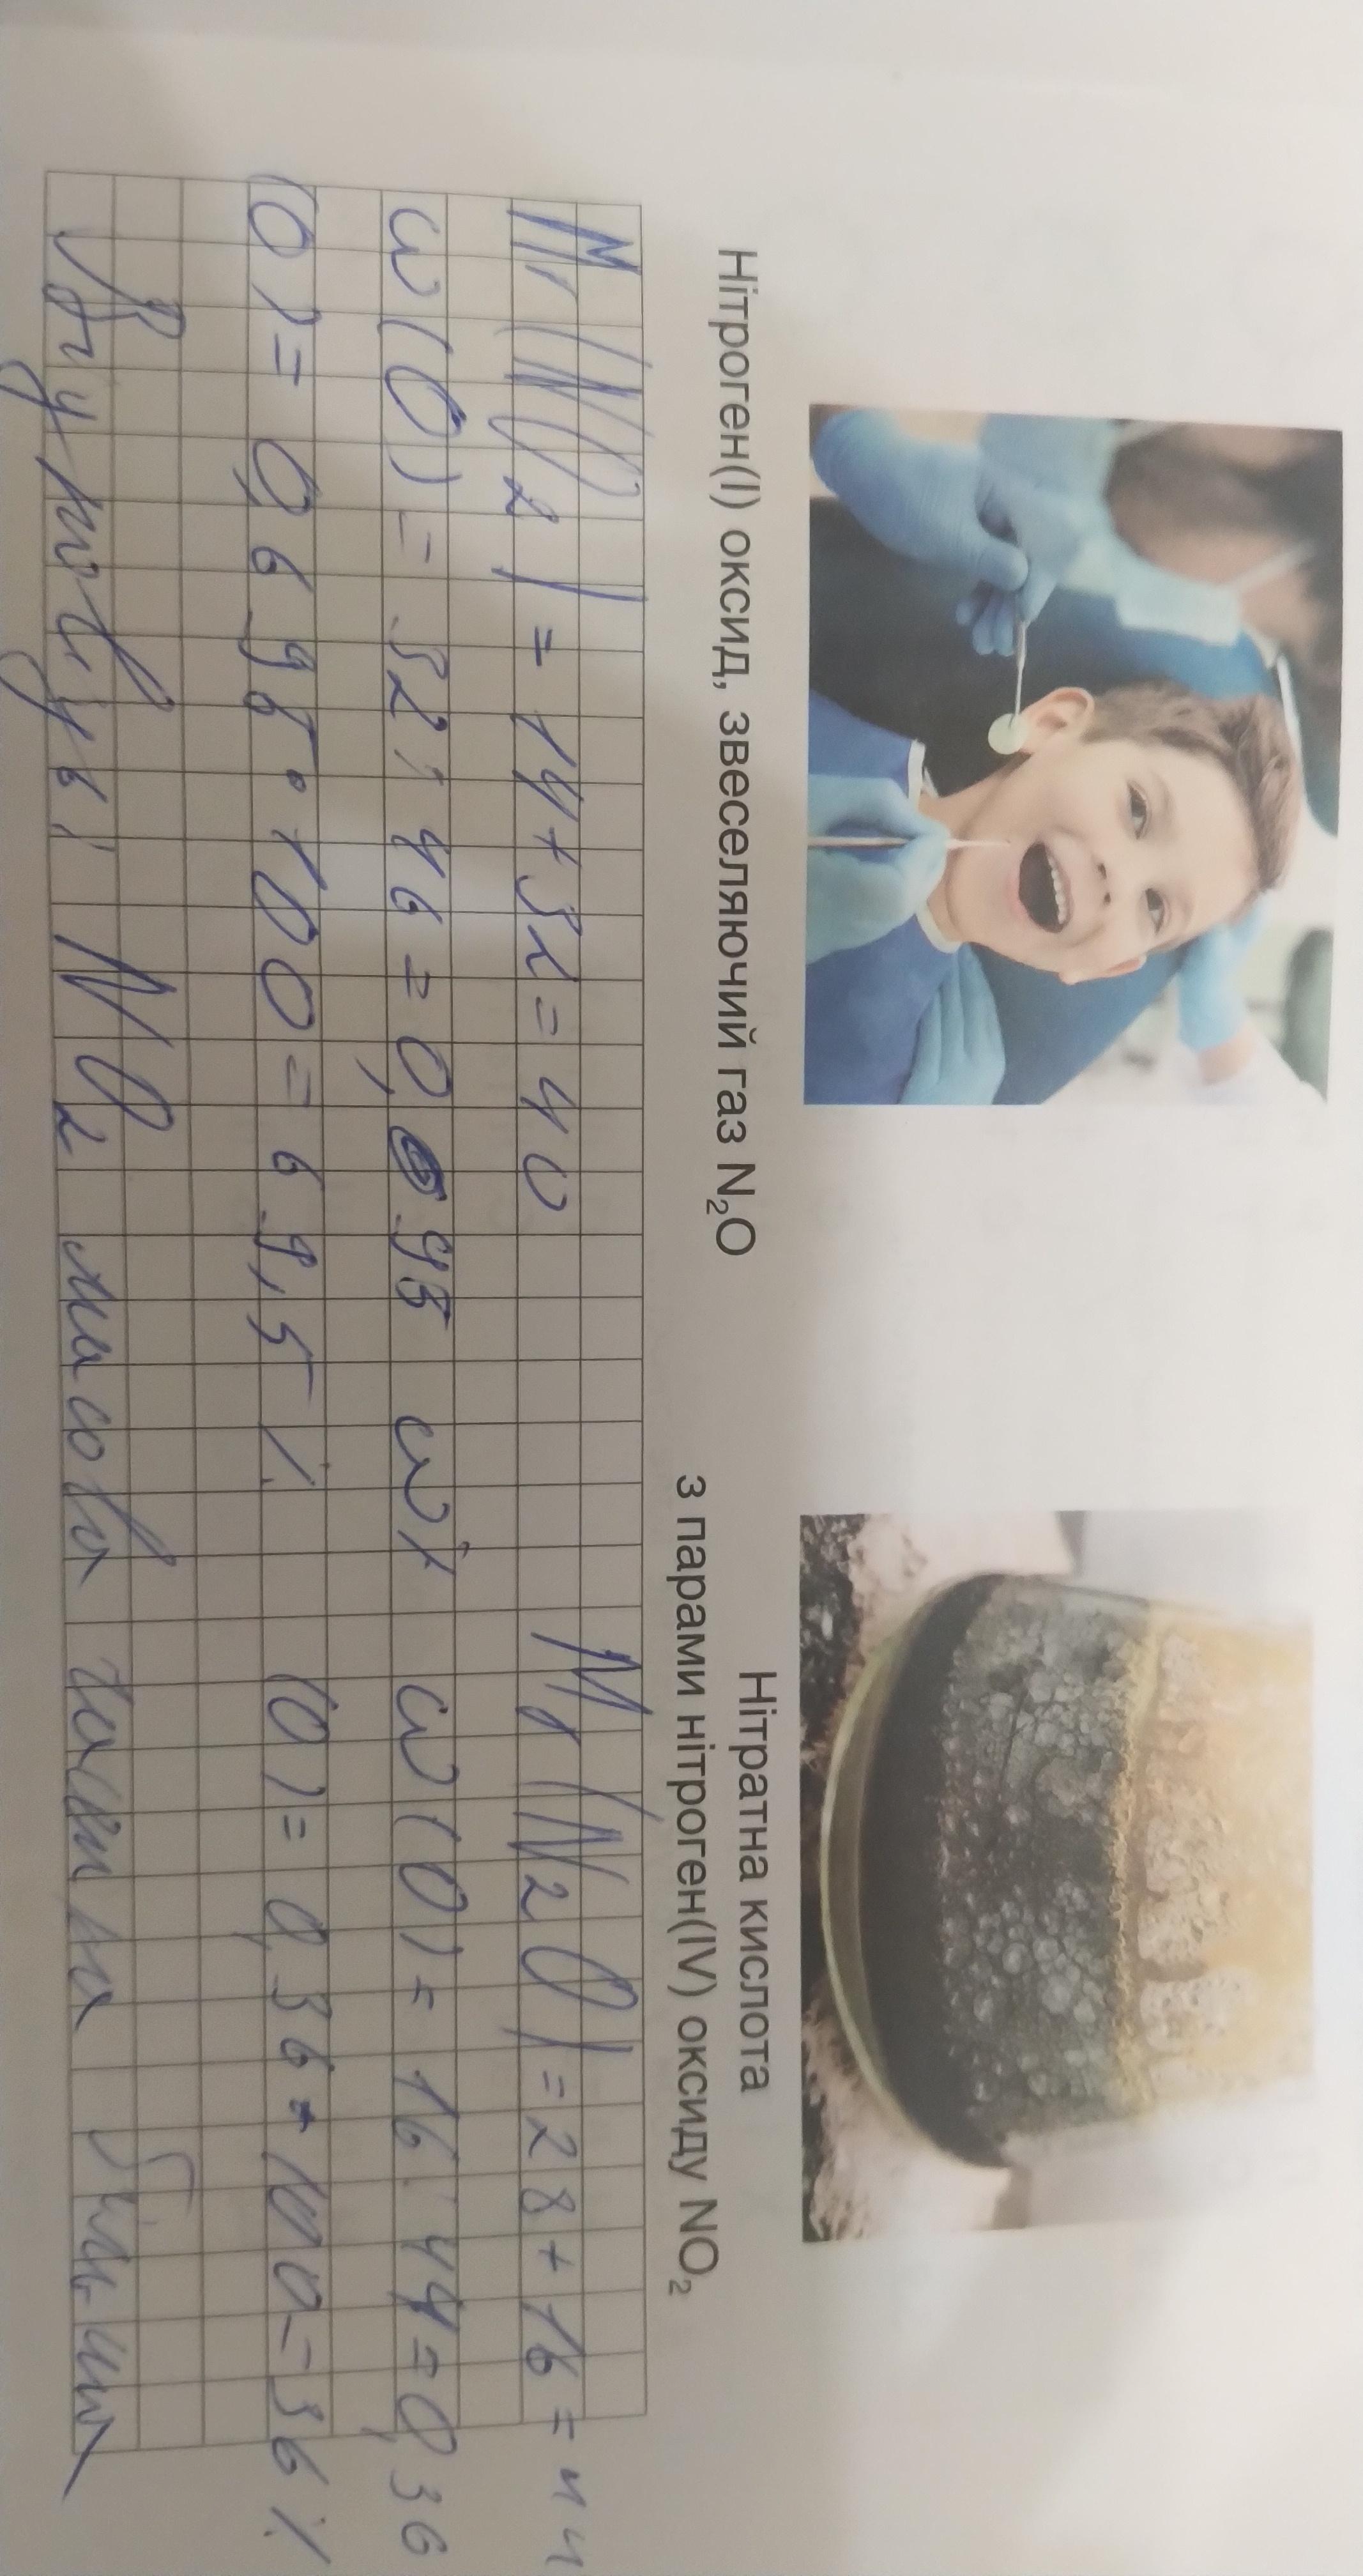 Нітроген(I) оксид, звеселяючий газ N₂O
Нітратна кислота
з парами нітроген(IV) оксиду NO₂
Mr(NO2) = 14+32=40
Mr(N2O)=28+16=44
w(O)= 32:46=0,695 w%
w(O)=16:44=0,36
(O)=0,695·100=69,5%
(O)=0,36·100=36%
NO2 масова частка більша